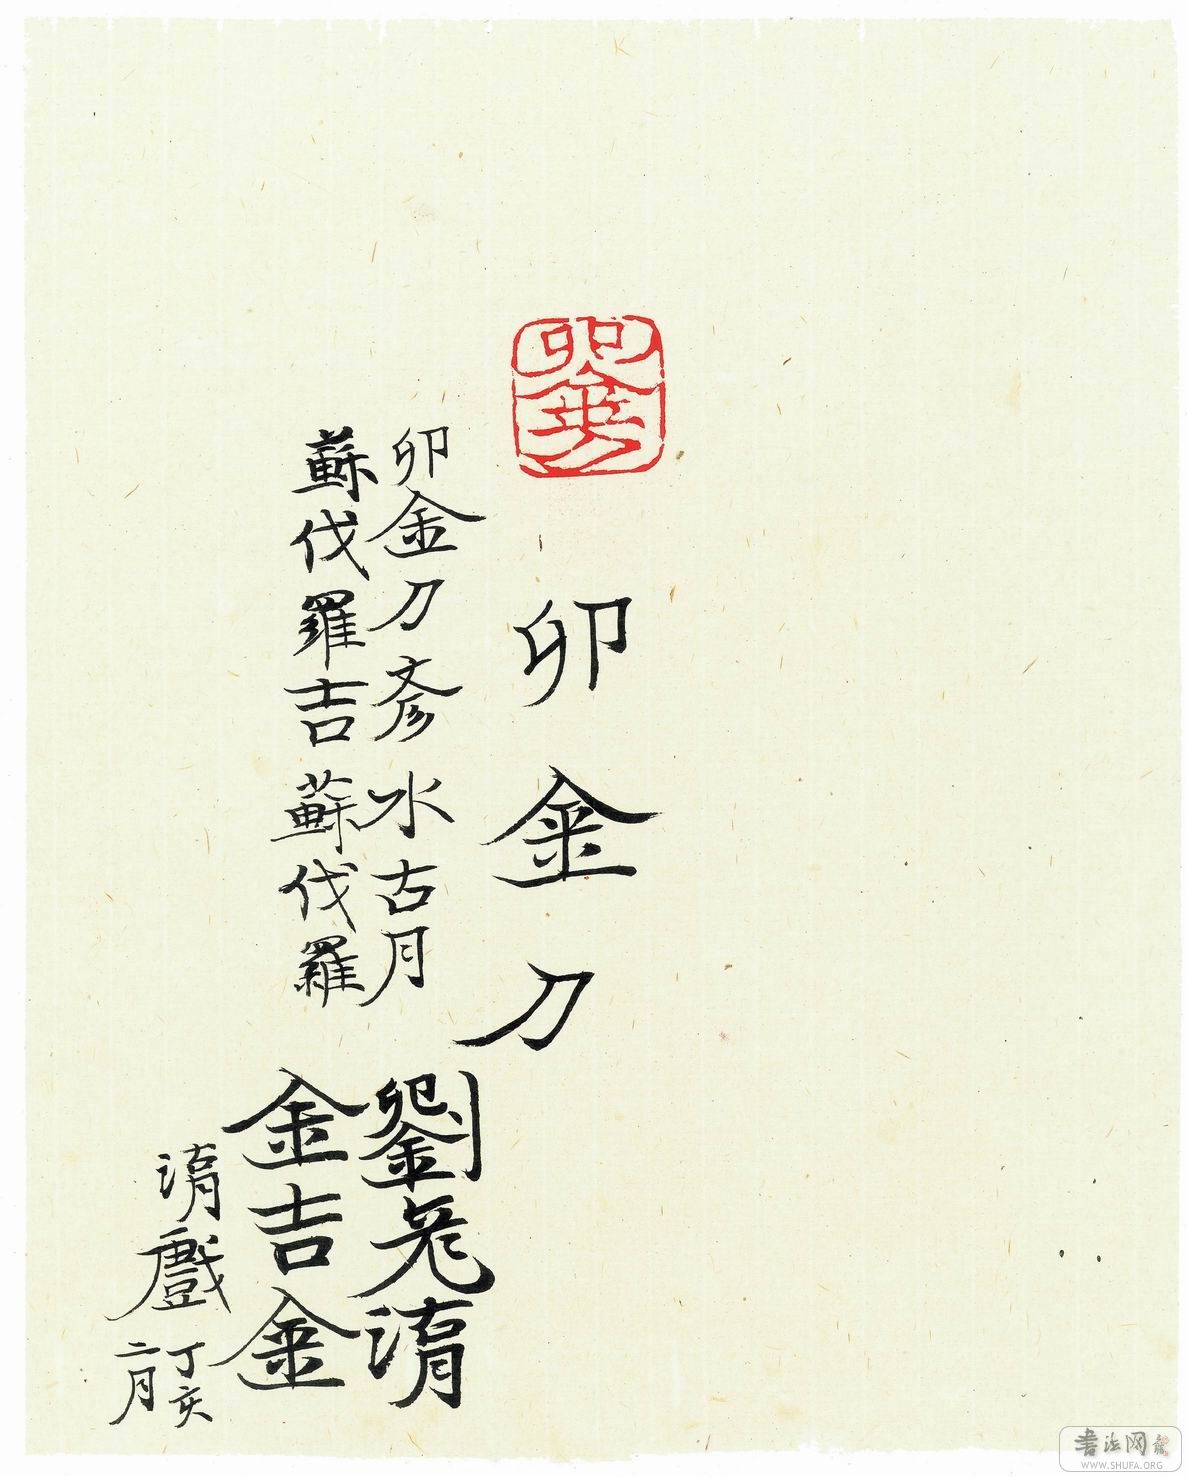 卯金刀
卯金刀斎水古月
蘇伐羅吉蘇伐羅
劉老湇
金吉金
湇戲
丁亥
二月
书法网
WWW.SHUFA.ORG